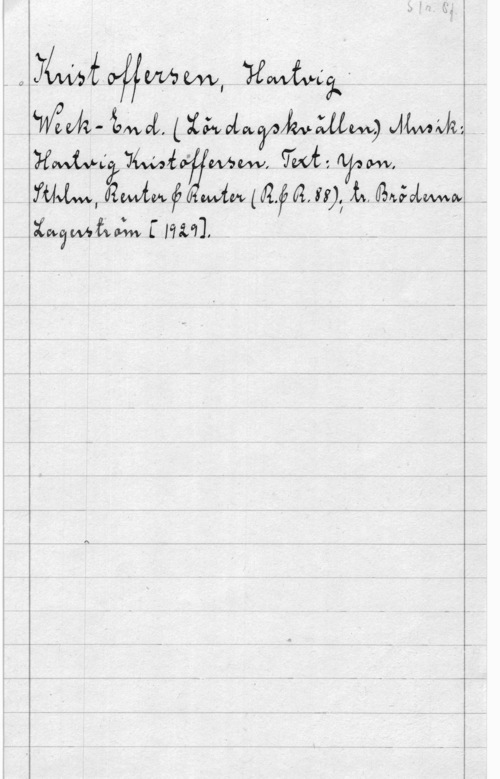 Kristoffersen, Hartvig
Week-End. (Lördagskvällen.) Musik:
Hartvig Kristoffersen. Text: Yson.
Sthlm, Reuter & Reuter (R. & R. 88); tr. Bröderna
Lagerström [1929].